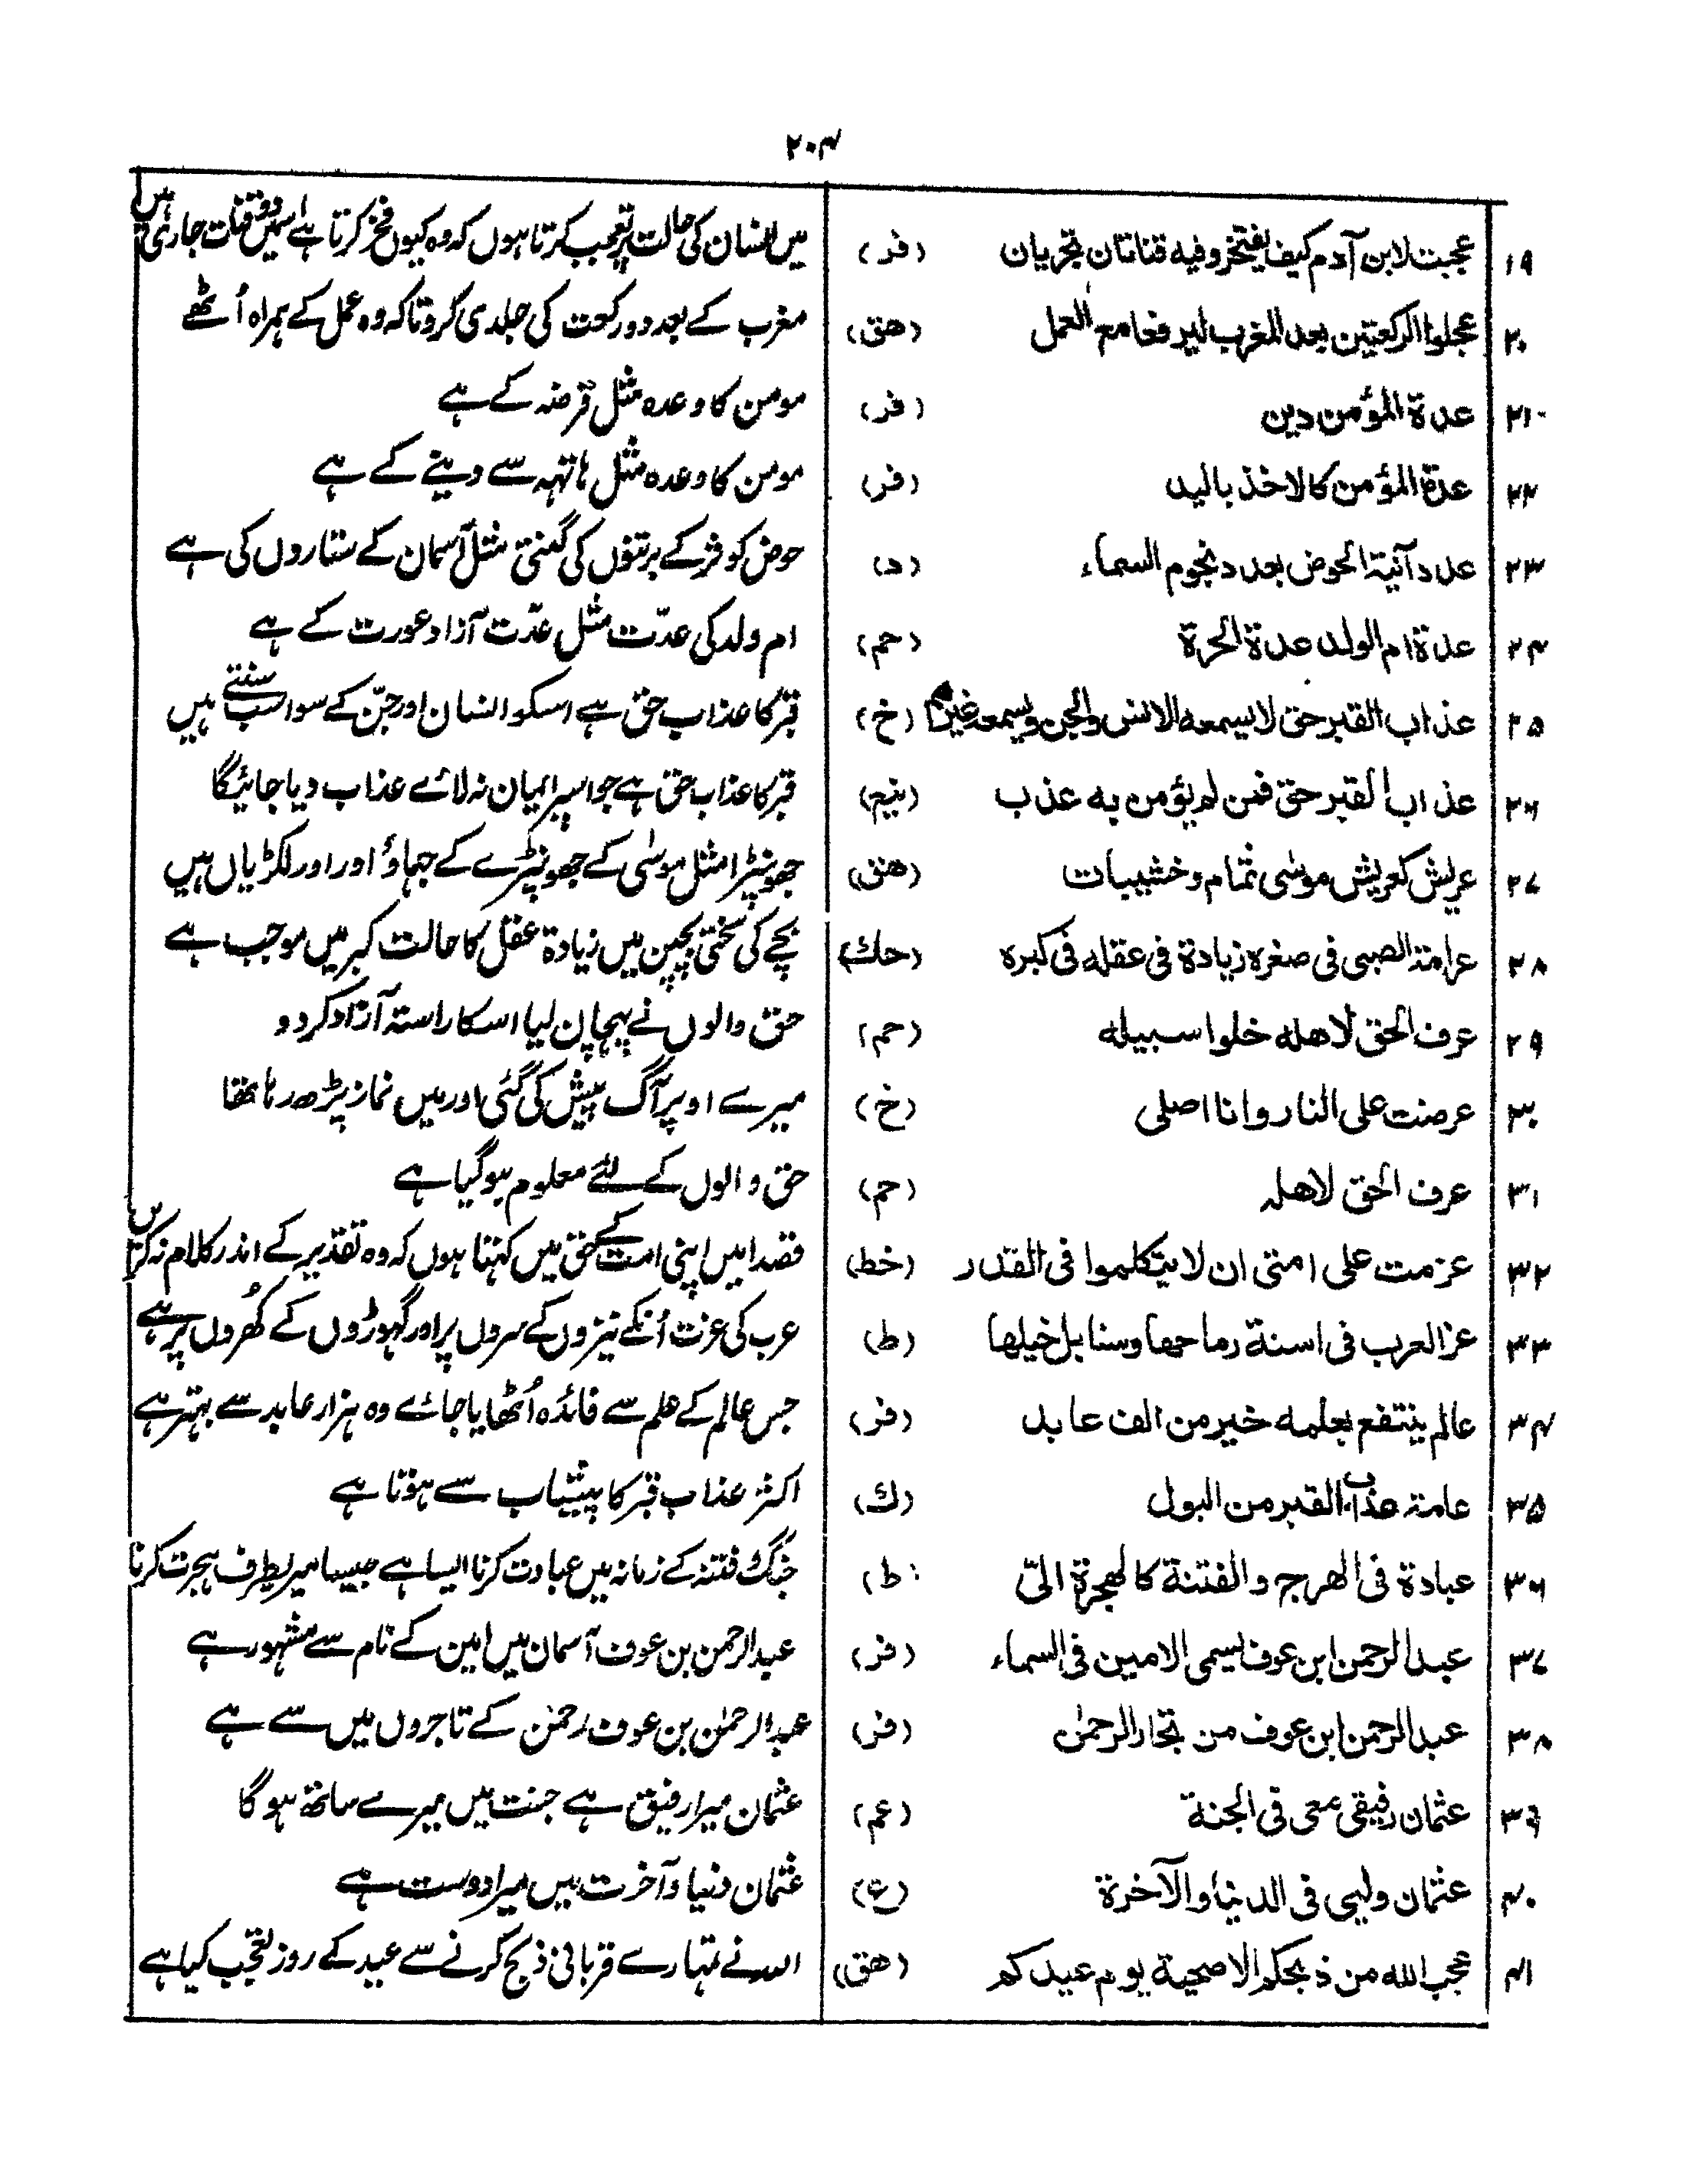 ۲۰۴
۱۹ عجبت لابن آدم کیف یفتخر وفیه قناتان تجریان (فر) میں انسان کی حالت پر تعجب کرتا ہوں کہ وہ کیوں فخر کرتا ہے اسمیں دو قنات جاری ہیں
۲۰ عجلوا الرکعتین بعد المغرب لیرفعا مع العمل (هق) مغرب کے بعد دو رکعت کی جلدی کرو تاکہ وہ عمل کے ہمراہ اُٹھے
۲۱ عدة المؤمن دین (فر) مومن کا وعدہ مثل قرضہ کے ہے
۲۲ عدة المؤمن کالاخذ بالید (فر) مومن کا وعدہ مثل ہاتہہ سے دینے کے ہے
۲۳ عدد آنیة الحوض بعدد نجوم السماء (د) حوض کوثر کے برتنوں کی گنتی مثل آسمان کے ستاروں کی ہے
۲۴ عدة ام الولد عدة الحرة (حم) ام ولد کی عدّت مثل عدّت آزاد عورت کے ہے
۲۵ عذاب القبر حق لا یسمعه الانس والجن ویسمعه غیرهم (خ) قبر کا عذاب حق ہے اسکو انسان اور جنّ کے سوا سب سنتے ہیں
۲۶ عذاب القبر حق فمن لم یؤمن به عذب (بنیع) قبر کا عذاب حق ہے جو اسپر ایمان نہ لائے عذاب دیا جائیگا
۲۷ عریش کعریش موسٰی ثمام وخشیبات (هق) جھونپڑا مثل موسٰی کے جھونپڑے کے جہاؤ اور اور لکڑیاں ہیں
۲۸ عرامة الصبی فی صغره زیادة فی عقله فی کبره (حك) بچے کی سختی بچپن میں زیادۃ عقل کا حالت کبر میں موجب ہے
۲۹ عرف الحق لاهله خلوا سبیله (حم) حق والوں نے پہچان لیا اسکا راستہ آزاد کردو
۳۰ عرضت علی النار وانا اصلی (خ) میرے اوپر آگ پیش کی گئی اور میں نماز پڑھ رہا تھا
۳۱ عرف الحق لاهله (حم) حق والوں کے لئے معلوم ہوگیا ہے
۳۲ عزمت علی امتی ان لا یتکلموا فی القدر (خط) قصدا میں اپنی امت کے حق میں کہتا ہوں کہ وہ تقدیر کے اندر کلام نہ کریں
۳۳ عز العرب فی اسنة رماحها وسنابل خیلها (ط) عرب کی عزت اُنکے نیزوں کے سروں پر اور گہوڑوں کے کُھروں پر ہے
۳۴ عالم ینتفع بعلمه خیر من الف عابد (فر) جس عالم کے علم سے فائدہ اُٹھایا جائے وہ ہزار عابد سے بہتر ہے
۳۵ عامة عذاب القبر من البول (ك) اکثر عذاب قبر کا پیشاب سے ہوتا ہے
۳۶ عبادة فی الهرج والفتنة کالهجرة الیّ (ط) جنگ فتنہ کے زمانہ میں عبادت کرنا ایسا ہے جیسا میریطرف ہجرت کرنا
۳۷ عبد الرحمن ابن عوف یسمی الامین فی السماء (فر) عبد الرحمن بن عوف آسمان میں امین کے نام سے مشہور ہے
۳۸ عبد الرحمن ابن عوف من تجار الرحمٰن (فر) عبد الرحمٰن بن عوف رحمٰن کے تاجروں میں سے ہے
۳۹ عثمان رفیقی معی فی الجنة (عم) عثمان میرا رفیق ہے جنت میں میرے ساتھ ہوگا
۴۰ عثمان ولیی فی الدنیا والآخرة (ع) عثمان دنیا و آخرت میں میرا دوست ہے
۴۱ عجب الله من ذبحکم الاضحیة یوم عیدکم (هق) اللہ نے تمہارے قربانی ذبح کرنے سے عید کے روز تعجّب کیا ہے